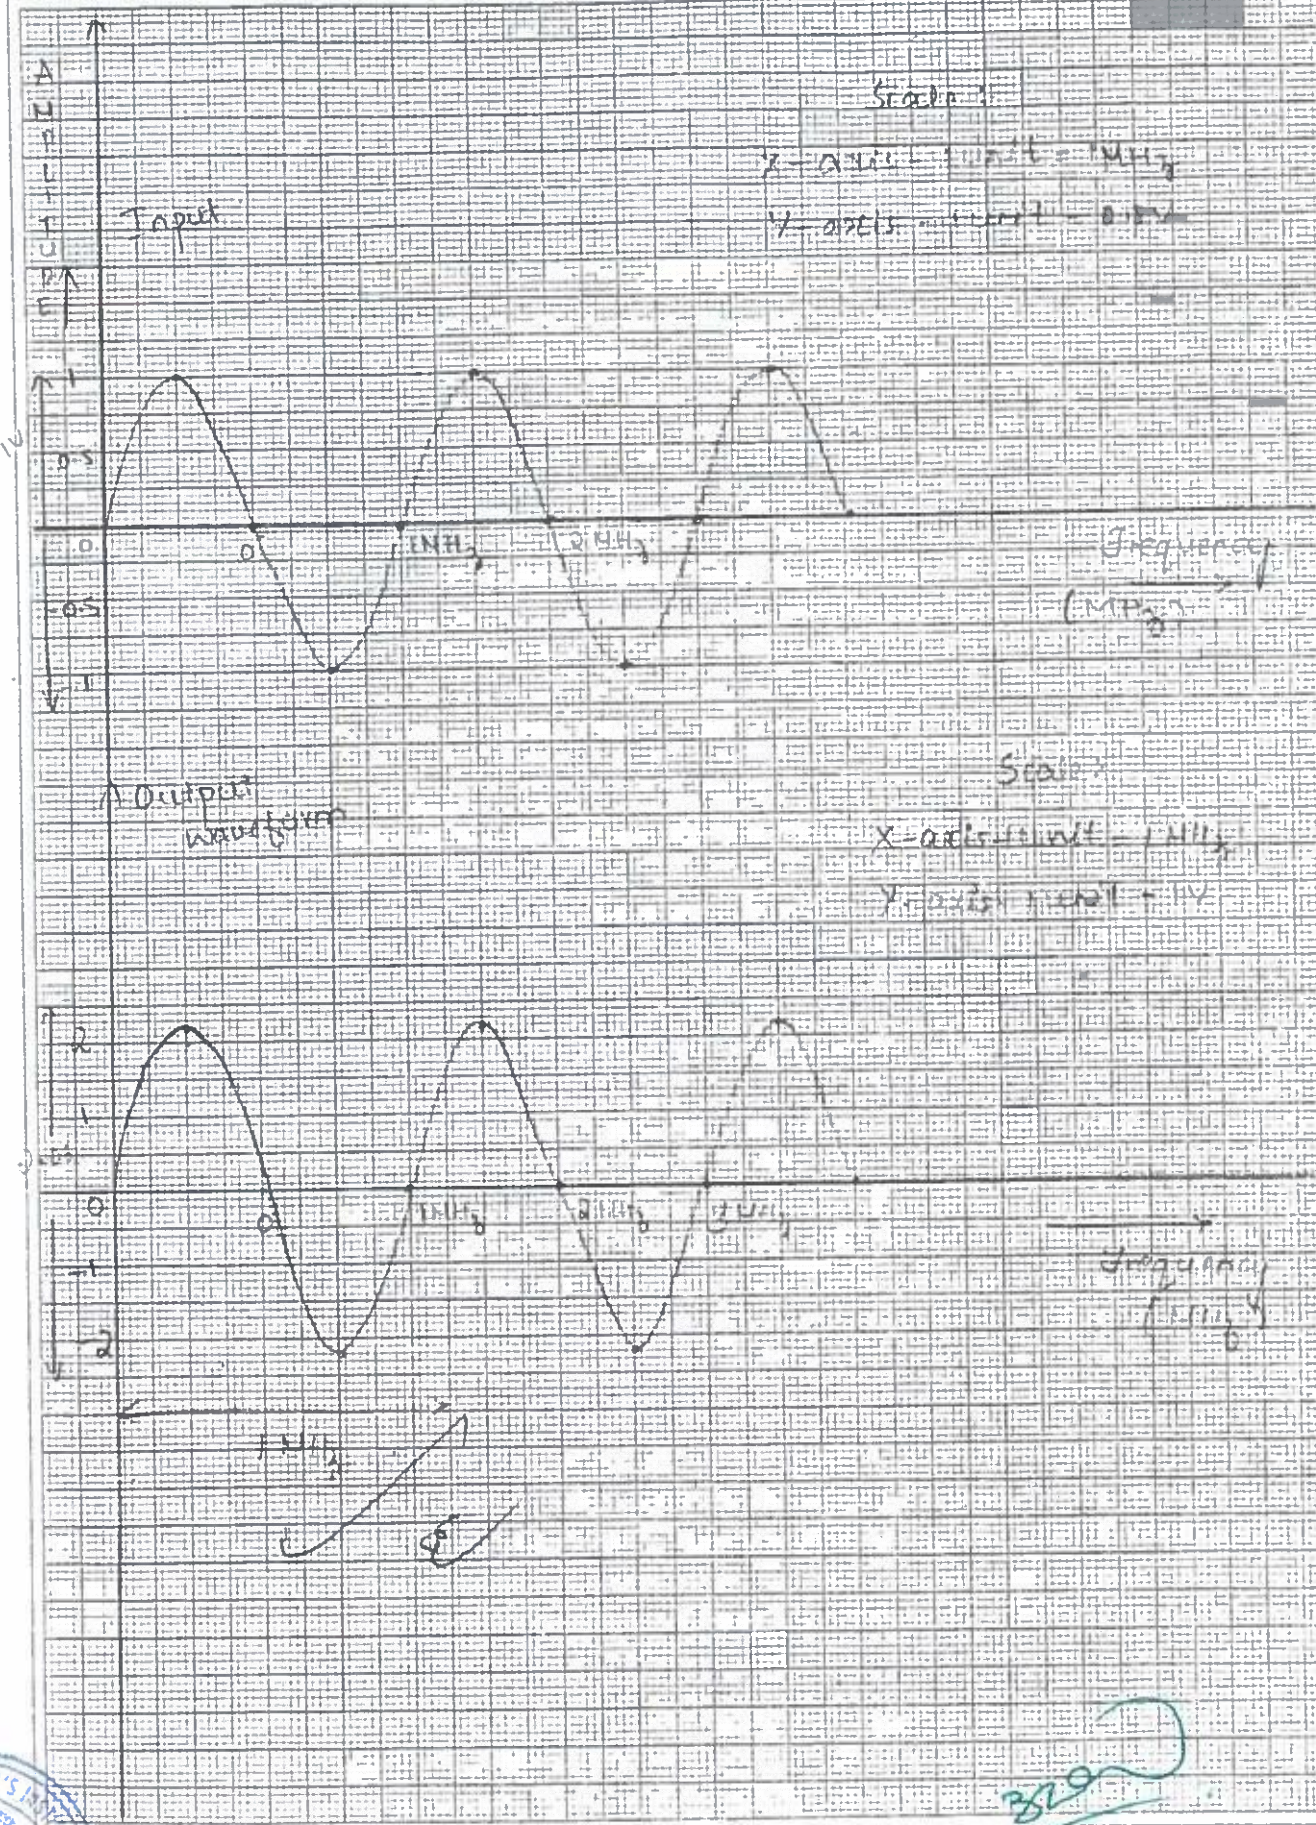 AMPLITUDE
Scale :
X-axis - 1 unit = 1MHz
Y-axis - 1 unit =
Input
1
0.5
0
0
1MHz
2MHz
Frequency
-0.5
-1
Output
waveform
Scale:
X-axis 1 unit - 1 MHz
Y-axis 1 unit - 1V
2
1
0
0
1MHz
2MHz
3MHz
Frequency
-1
-2
1 MHz